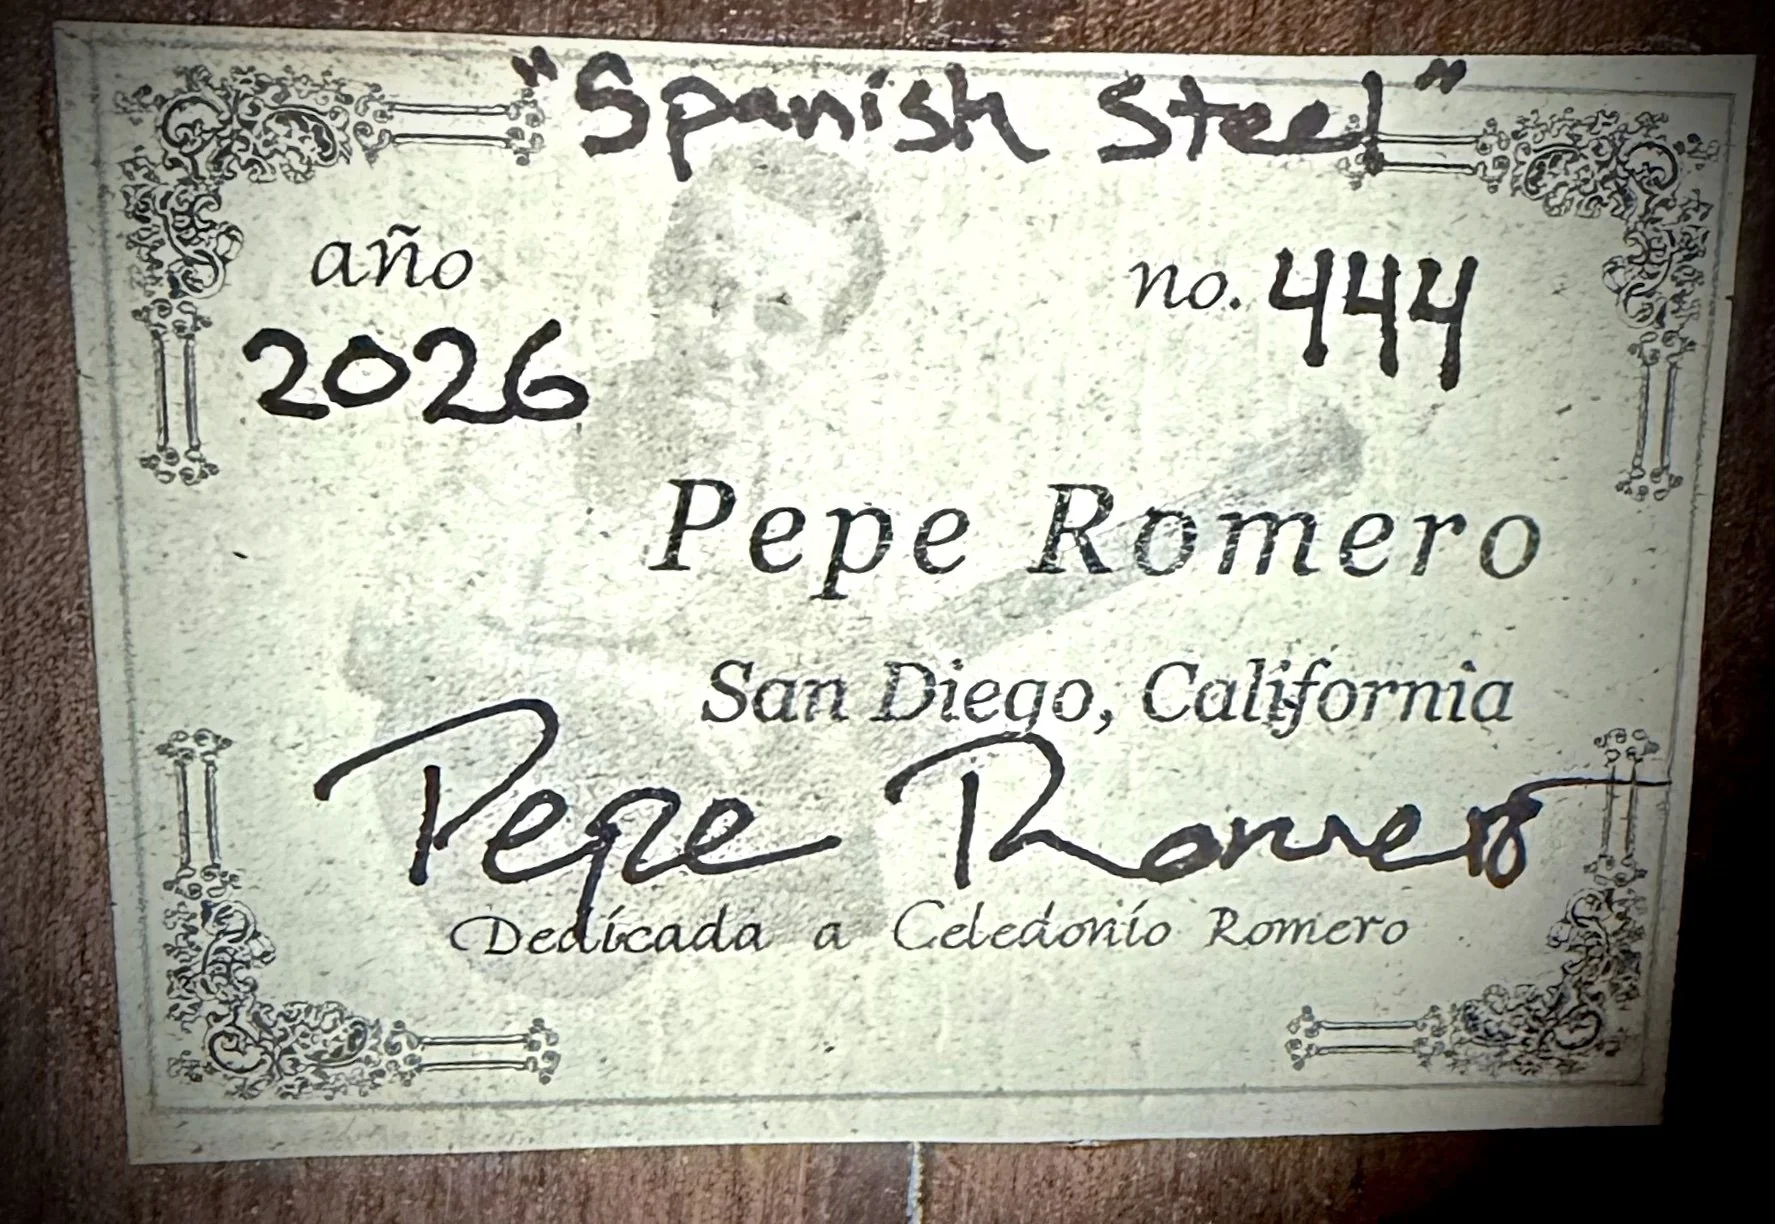 "Spanish Steel"
año no. 444
2026
Pepe Romero
San Diego, California
Pepe Romero
Dedicada a Celedonio Romero